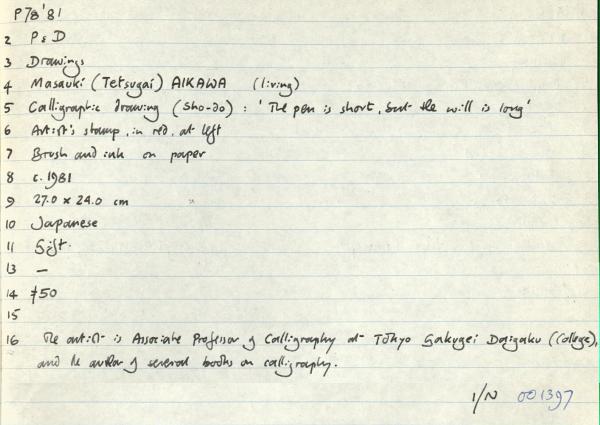 P78'81
2 P & D
3 Drawings
4 Masauki (Tetsugai) AIKAWA (living)
5 Calligraphic drawing (Sho-do) : 'The pen is short, but the will is long'
6 Artist's stamp, in red, at left
7 Brush and ink on paper
8 c. 1981
9 27.0 x 24.0 cm
10 Japanese
11 Gift.
13 —
14 £50
15
16 The artist is Associate Professor of Calligraphy at Tokyo Gakugei Daigaku (College),
and the author of several books on calligraphy.
1/N 001397